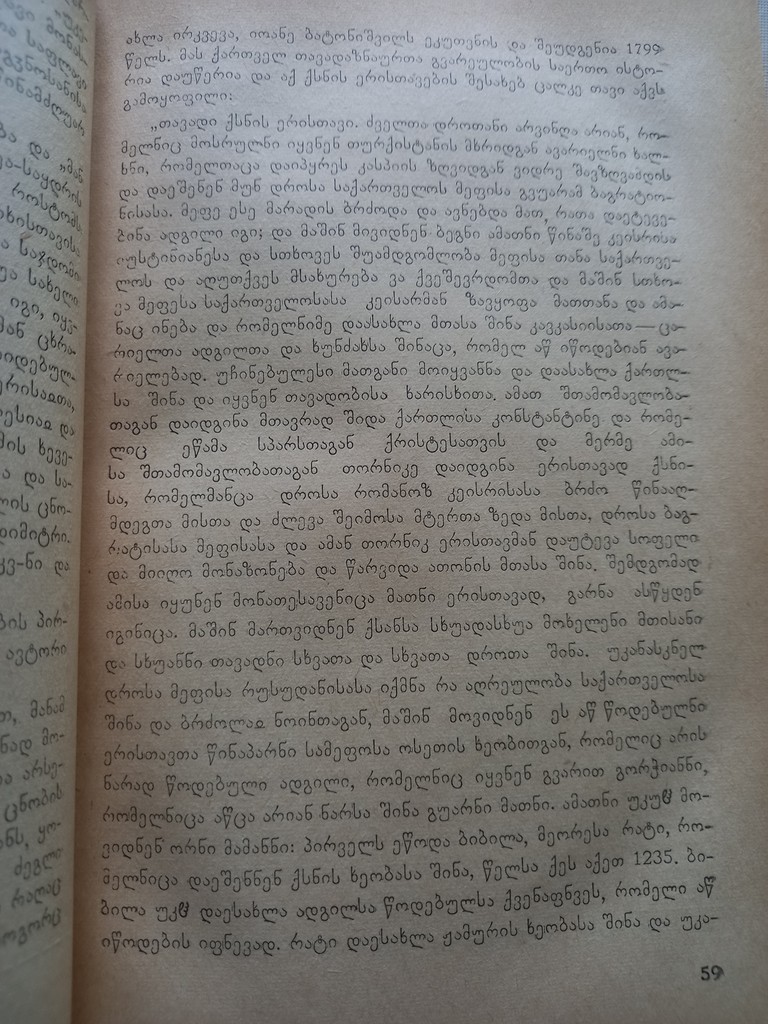 ახლა ირკვევა, იოანე ბატონიშვილს ეკუთვნის და შეუდგენია 1799
წელს. მას ქართველ თავადაზნაურთა გვარეულობის საერთო ისტო-
რია დაუწერია და აქ ქსნის ერისთავების შესახებ ცალკე თავი აქვს
გამოყოფილი:
„თავადი ქსნის ერისთავი. ძველთა დროთანი არვინღა არიან, რო-
მელნიც მოსრულნი იყვნენ თურქისტანის მხრიდგან ავარიელნი ხალ-
ხნი, რომელთაცა დაიპყრეს კასპიის ზღვიდგან ვიდრე შავზღვამდის
და დაეშენენ მუნ დროსა საქართველოს მეფისა გვუარამ ბაგრატიო-
ნისასა. მეფე ესე მარადის ბრძოდა და ავნებდა მათ, რათა დაეტევე-
ბინა ადგილი იგი; და მაშინ მივიდნენ ბეგნი ამათნი წინაშე კეისრისა
იუსტინიანესა და სთხოვეს შუამდგომლობა მეფისა თანა საქართვე-
ლოს და აღუთქვეს მსახურება ვა ქვეშევრდომთა და მაშინ სთხო-
ვა მეფესა საქართველოსასა კეისარმან ზავყოფა მათთანა და ამა-
ნაც ინება და რომელნიმე დაასახლა მთასა შინა კავკასიისათა — ცა-
რიელთა ადგილთა და ხუნძახსა შინაცა, რომელ აწ იწოდებიან ავა-
რიელებად. უჩინებულესი მათგანი მოიყვანნა და დაასახლა ქართლ-
სა შინა და იყვნენ თავადობისა ხარისხითა. ამათ შთამომავლობა-
თაგან დაიდგინა მთავრად შიდა ქართლისა კონსტანტინე და რომე-
ლიც ეწამა სპარსთაგან ქრისტესათვის და მერმე ამი-
სა შთამომავლობათაგან თორნიკე დაიდგინა ერისთავად ქსნი-
სა, რომელმანცა დროსა რომანოზ კეისრისასა ბრძო წინააღ-
მდეგთა მისთა და ძლევა შეიმოსა მტერთა ზედა მისთა. დროსა ბაგ-
რატისასა მეფისასა და ამან თორნიკ ერისთავმან დაუტევა სოფელი
და მიიღო მონაზონება და წარვიდა ათონის მთასა შინა. შემდგომად
ამისა იყუნენ მონათესავენიცა მათნი ერისთავად, გარნა ასწყდენ
იგინიცა. მაშინ მართვიდნენ ქსანსა სხუადასხუა მოხელენი მთისანი
და სხუანნი თავადნი სხვათა და სხვათა დროთა შინა. უკანასკნელ
დროსა მეფისა რუსუდანისასა იქმნა რა აღრეულობა საქართველოსა
შინა და ბრძოლაჲ ნოინთაგან, მაშინ მოვიდნენ ეს აწ წოდებულნი
ერისთავთა წინაპარნი სამეფოსა ოსეთის ხეობითგან, რომელიც არის
ნარად წოდებული ადგილი, რომელნიც იყვნენ გვარით გორჭიანნი,
რომელნიცა აწცა არიან ნარსა შინა გუარნი მათნი. ამათნი უკუჱ მო-
ვიდნენ ორნი მამანნი: პირველს ეწოდა ბიბილა, მეორესა რატი, რო-
მელნიცა დაეშენნენ ქსნის ხეობასა შინა, წელსა ქეს აქეთ 1235. ბი-
ბილა უკჱ დაესახლა ადგილსა წოდებულსა ქვენაფნვეს, რომელი აწ
იწოდების იფნევად. რატი დაესახლა ჟამურის ხეობასა შინა და უკა-
59